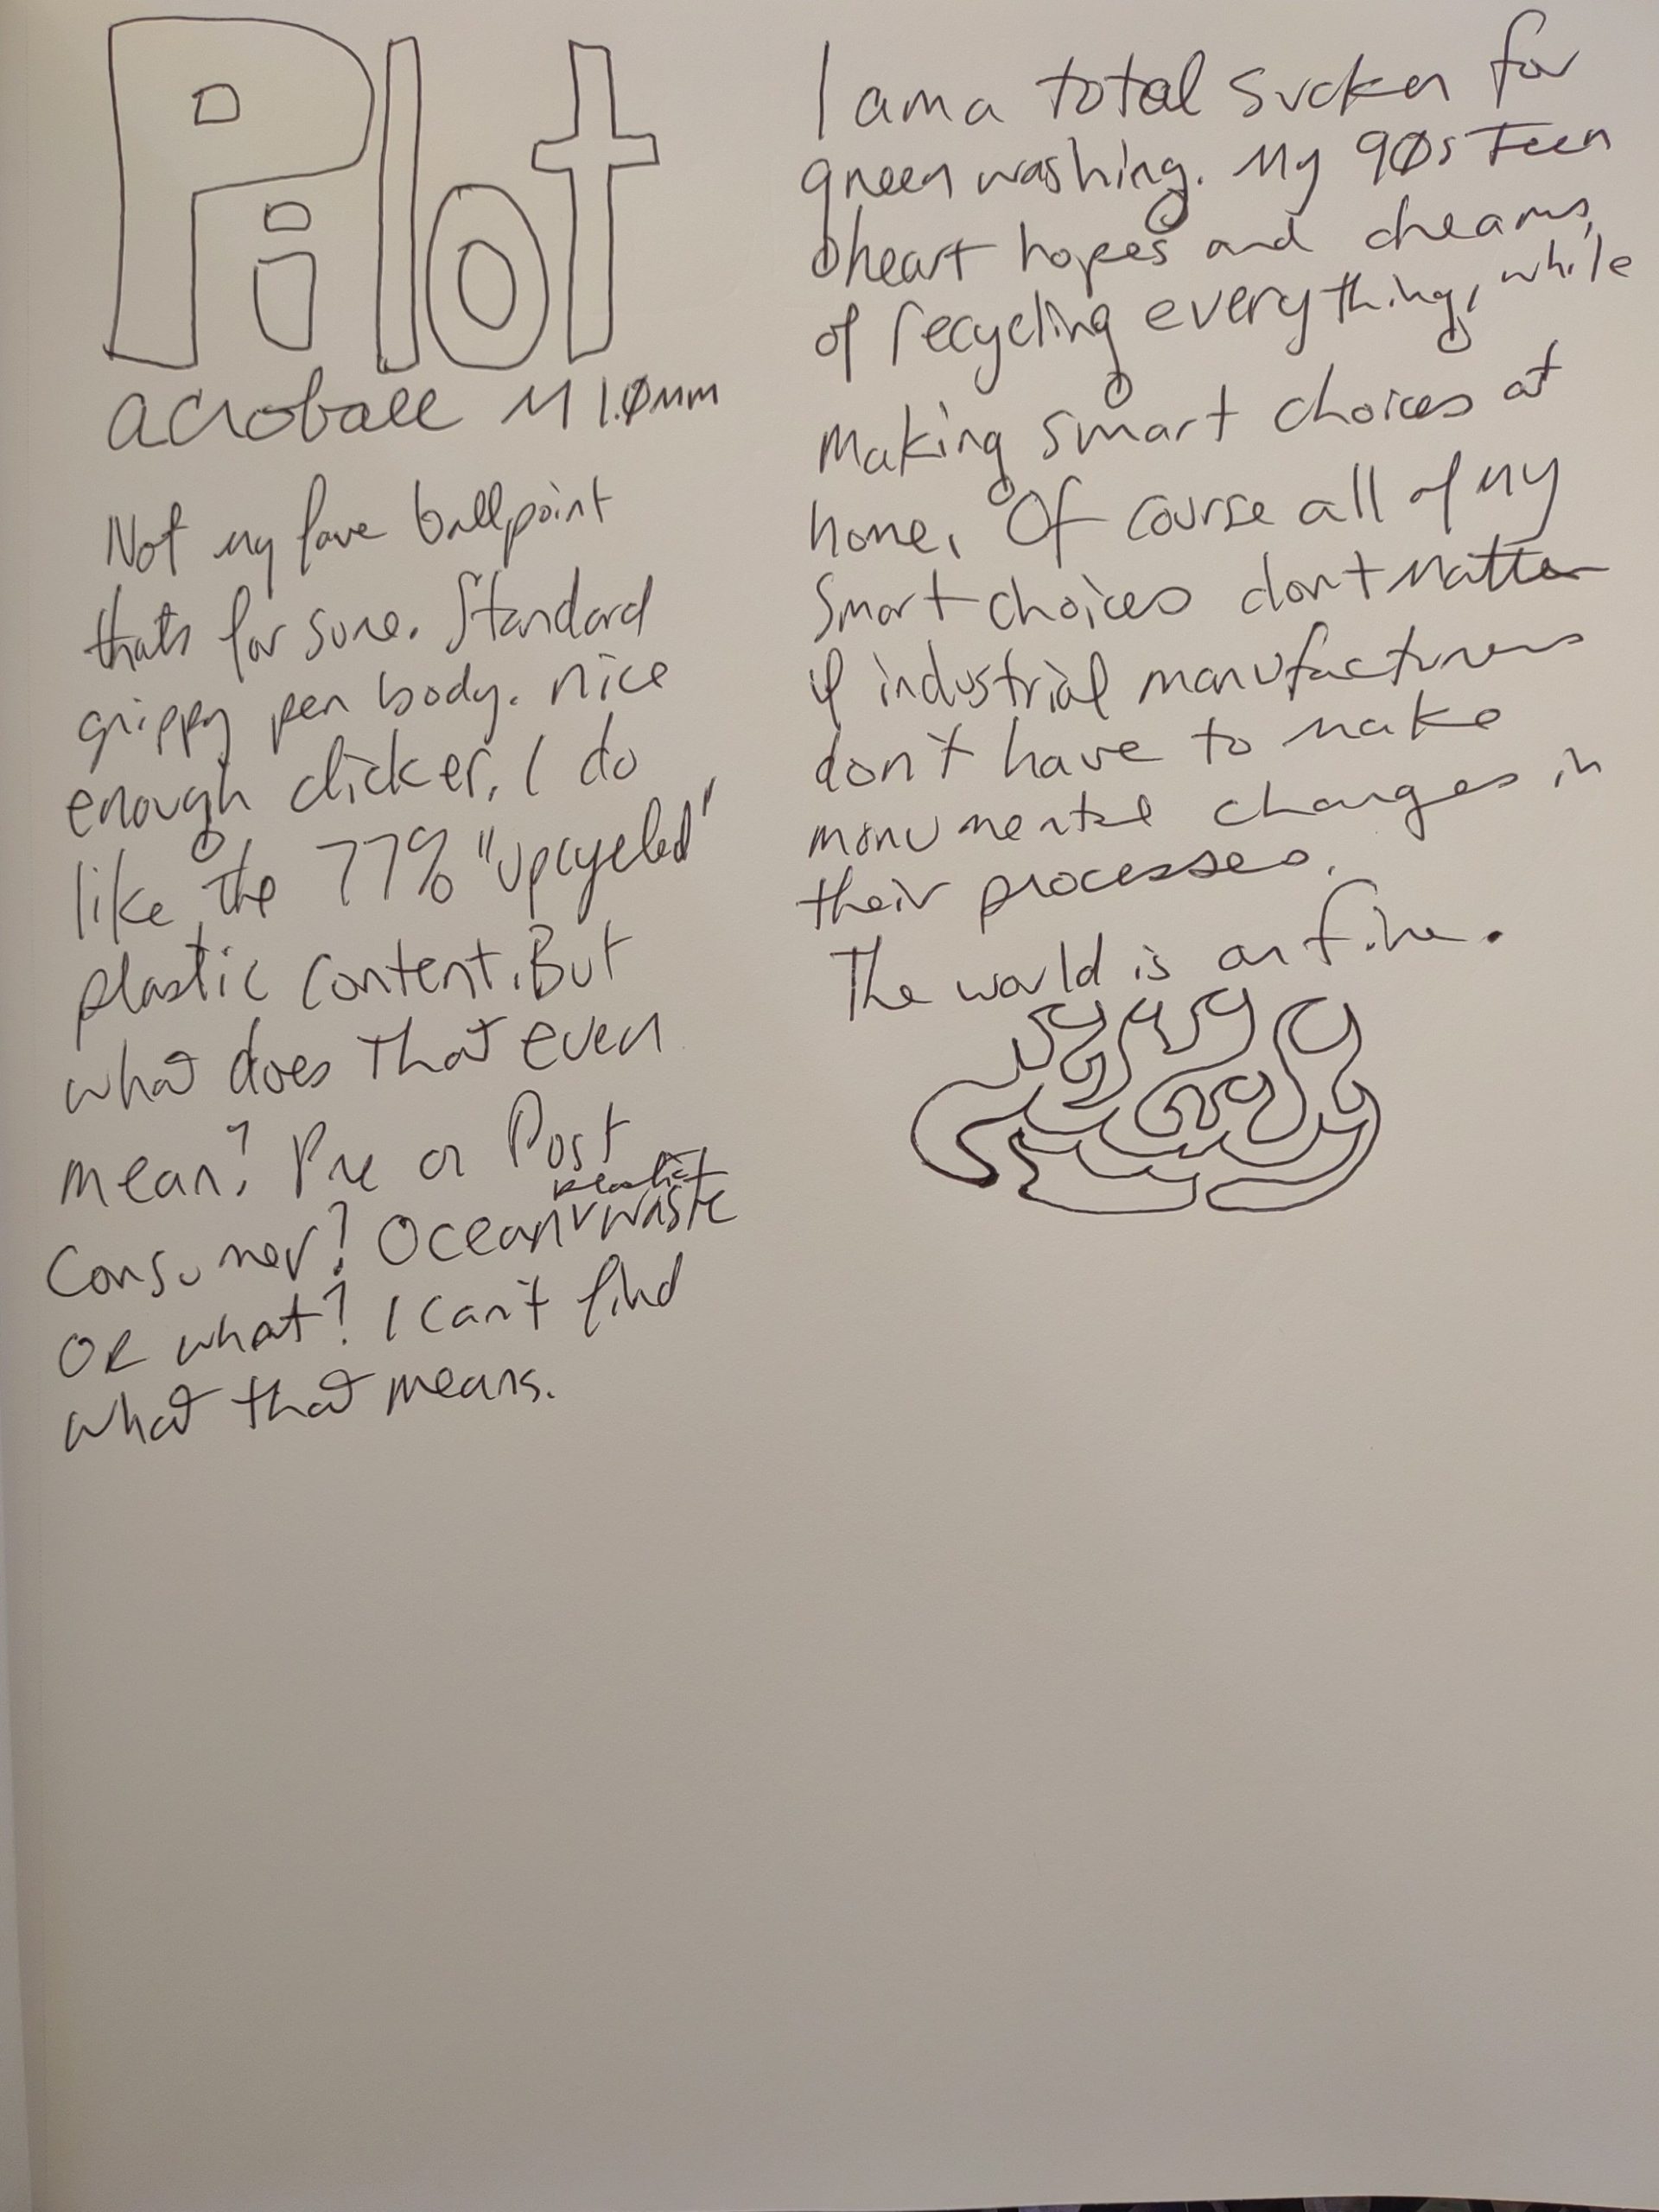 Pilot
acroball M 1.0mm
Not my fave ballpoint
thats for sure. Standard
grippy pen body. nice
enough clicker. I do
like the 77% "upcycled"
plastic content. But
what does that even
mean? Pre or Post
Consumer? Ocean plastic waste
OR what? I can't find
what that means.
I am a total sucker for
greenwashing. My 90s Teen
heart hopes and dreams,
of recycling everything, while
making smart choices at
home. Of course all of my
Smart choices don't matter
if industrial manufacturers
don't have to make
monumental changes in
their processes.
The world is on fire.